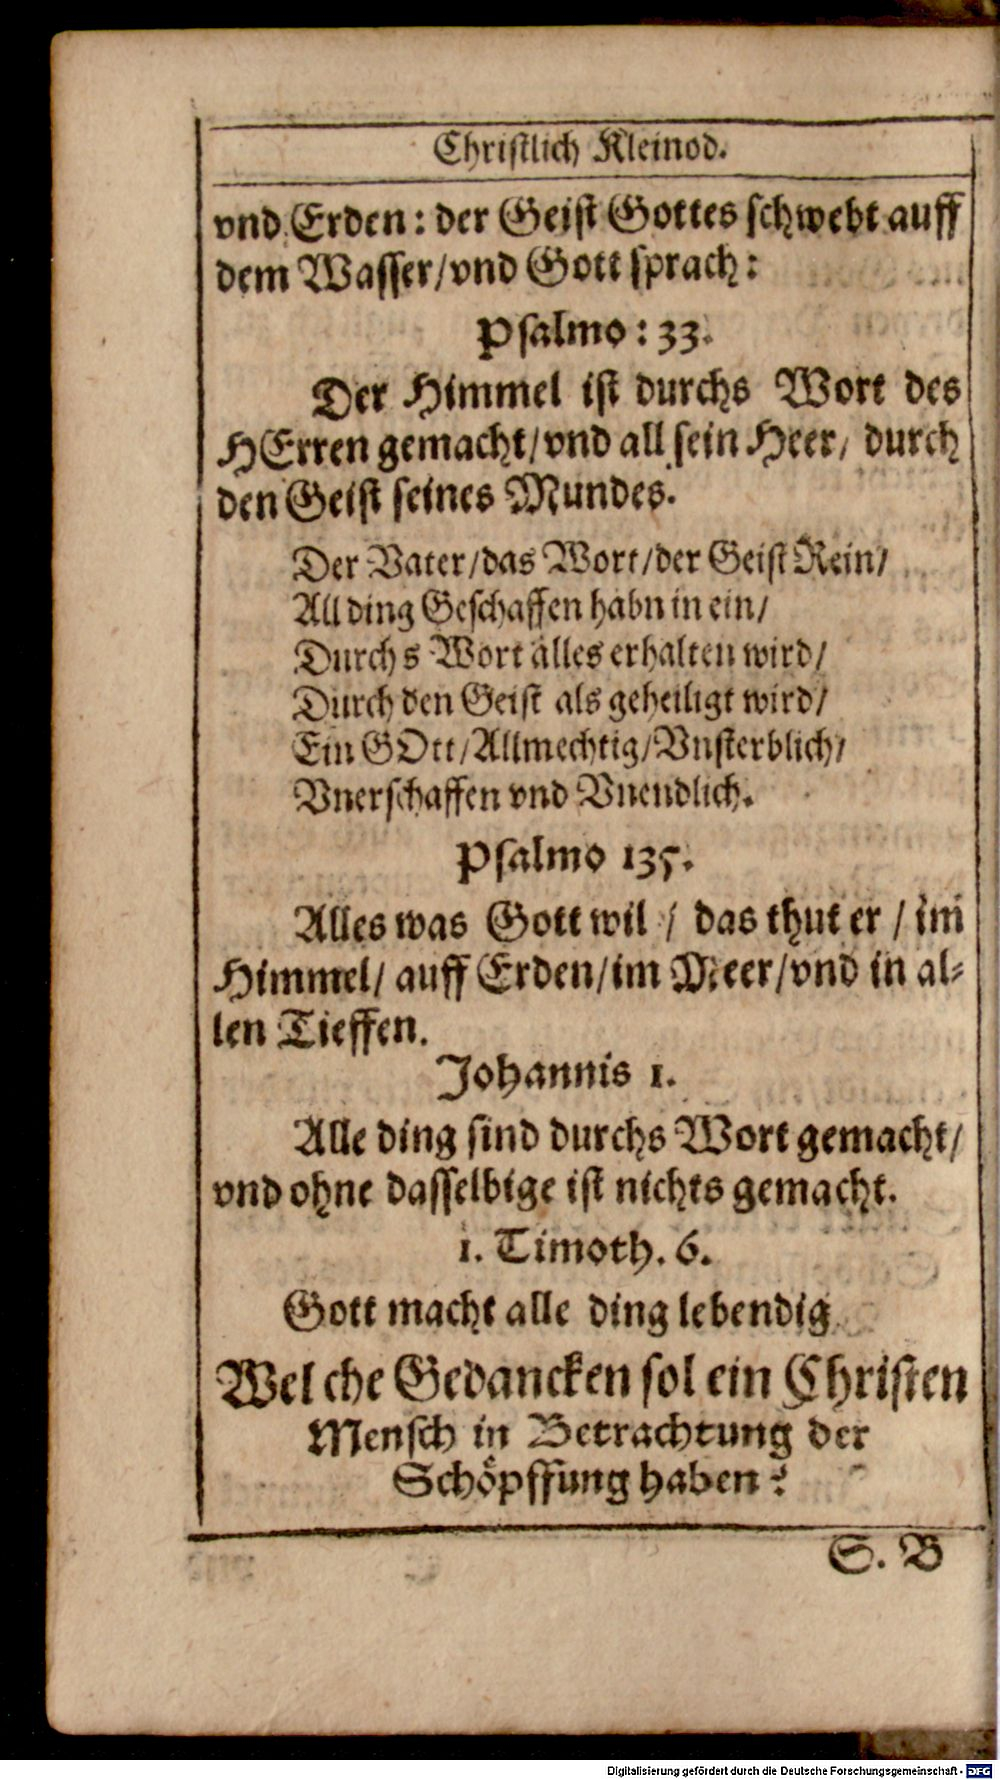 Christlich Kleinod.
vnd Erden: der Geist Gottes schwebt auff
dem Wasser/vnd Gott sprach:
Psalmo: 33.
Der Himmel ist durchs Wort des
HErren gemacht/vnd all sein Heer/ durch
den Geist seines Mundes.
Der Vater/das Wort/der Geist Rein/
All ding Geschaffen habn in ein/
Durchs Wort alles erhalten wird/
Durch den Geist als geheiligt wird/
Ein GOtt/Allmechtig/Vnsterblich/
Vnerschaffen vnd Vnendlich.
Psalmo 135.
Alles was Gott wil / das thut er / im
Himmel/ auff Erden/im Meer/vnd in al-
len Tieffen.
Johannis 1.
Alle ding sind durchs Wort gemacht/
vnd ohne dasselbige ist nichts gemacht.
1. Timoth. 6.
Gott macht alle ding lebendig
Welche Gedancken sol ein Christen
Mensch in Betrachtung der
Schöpffung haben?
S. B
Digitalisierung gefördert durch die Deutsche Forschungsgemeinschaft - DFG